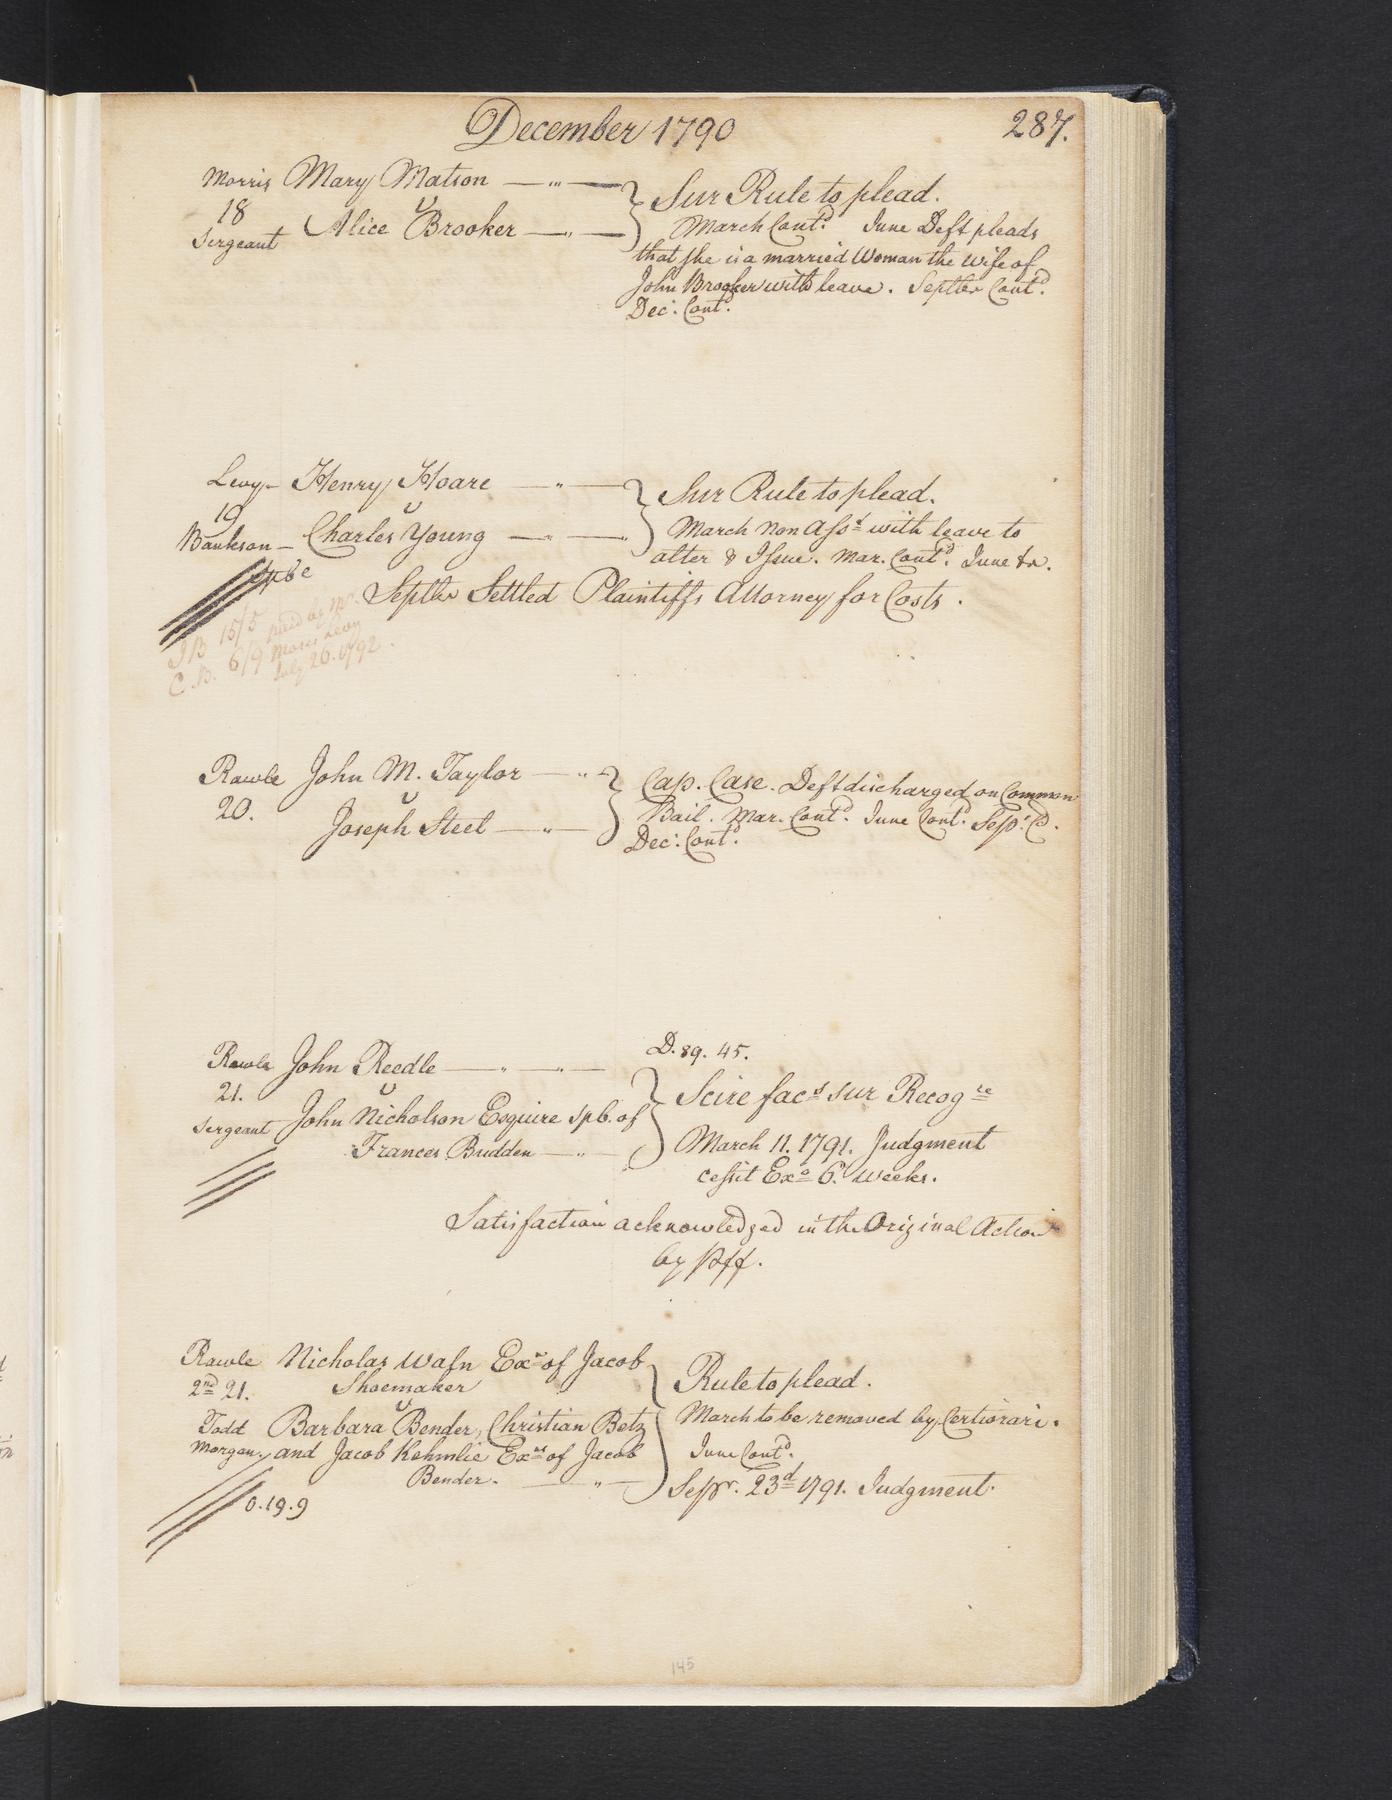 December 1790
287.
Morris Mary Matson
18 v
Sergeant Alice Brooker
Sur Rule to plead.
March Cont.d June Deft pleads
that she is a married Woman the wife of
John Brooker with leave. Septber Cont.d
Dec.r Cont.d
Levy Henry Hoare
19 v
Bankson Charles Young
Sur Rule to plead.
March Non Asst with leave to
alter & Issue. Mar. Cont.d June
Septbr Settled Plaintiffs Attorney for Costs.
J B 15/5 paid by Mr.
C. B. 6/9 Moses Levy
July 26. 1792.
Rawle John M. Taylor
20. v
Joseph Steel
Cap. Case. Deft discharged on Common
Bail. Mar. Cont.d June Cont.d Sep.r C.d.
Dec.r Cont.d
D. 89. 45.
Rawle John Reedle
21. v
Sergeant John Nicholson Esquire spb. of
Frances Budden
Scire fac.s sur Recog re
March 11. 1791. Judgment
cessit Exo 6. weeks.
Satisfaction acknowledged in the Original Action
by Plff.
Rawle Nicholas Waln Exr of Jacob
2nd 21. Shoemaker
v
Todd Barbara Bender, Christian Betz
Morgan, and Jacob Kehmlie Exrs of Jacob
Bender.
0.19.9
Rule to plead.
March to be removed by Certiorari.
June Cont.d
Sepr. 23d 1791. Judgment.
145